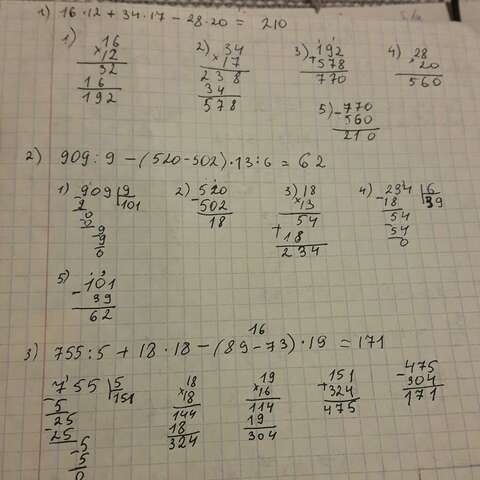 1) 16·12 + 34·17 − 28·20 = 210
1) 16
×12
32
16
192
2) 34
×17
238
34
578
3) 192
+578
770
4) 28
·20
560
5) −770
560
210
2) 909:9 −(520−502)·13:6 = 62
1) 909 9
9 101
0
0
9
−9
0
2) 520
−502
18
3) 18
×13
54
+18
234
4) −234 6
18 39
54
54
0
5) 101
−39
62
16
3) 755:5 + 18·18 −(89−73)·19 = 171
755 5
−5 151
−25
25
5
−5
0
18
×18
144
18
324
19
×16
114
19
304
151
+324
475
−475
304
171